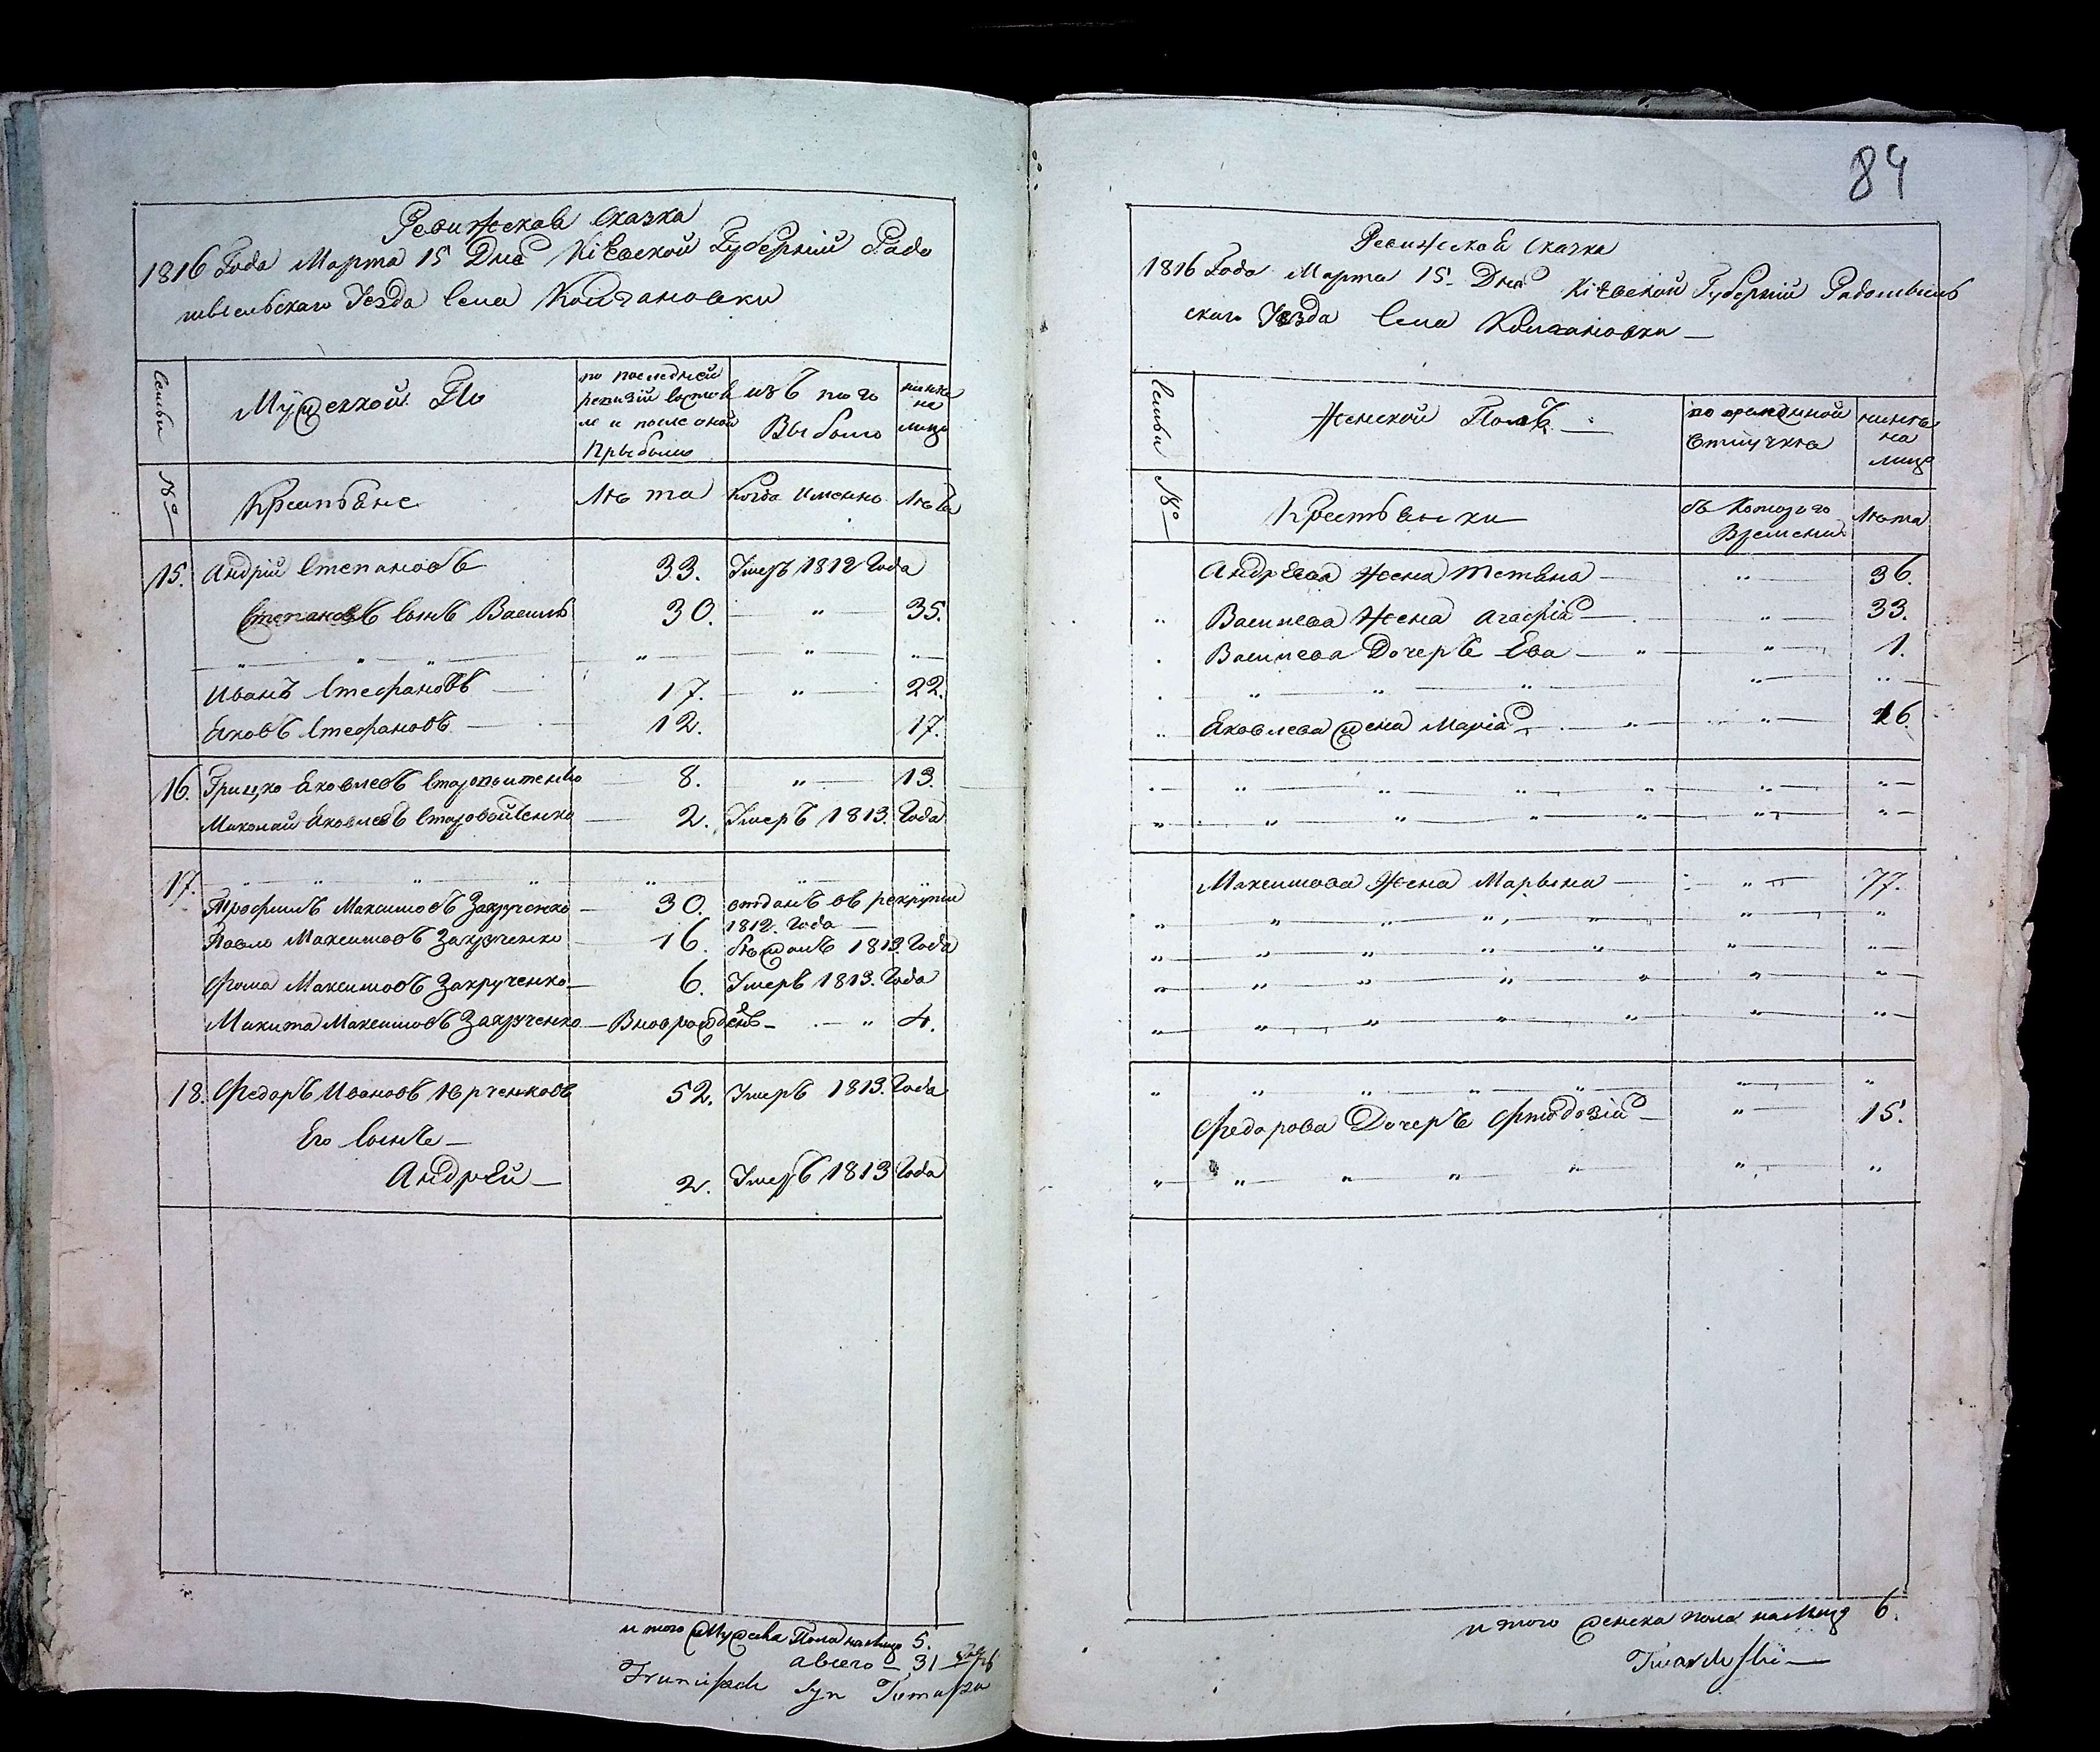 Ревижская сказка
1816 Года Марта 15 Дня Кіевской Губерніи Радо
мысльскаго Уезда Села
Семьи
Мужескои По
по последней
ревизіи состоя
ло и после оной
Прыбыло
изъ того
Выбыло
ныне
на
лицо
№
Крестьяне
Лѣта
Когда Именно
Лѣта
15. Андрій Степановъ 33. Умеръ 1812 Года
Степановъ сынъ Василь 30. — " — 35.
" " " " " "
Иванъ Стефановъ 17. — " — 22.
Яковъ Стефановъ 12. 17.
16. Грицко Яковлевъ 8. " 13.
Миколай Яковлевъ Старовойтенко 2. Умеръ 1813. Года
17. " " " " " "
Трофимъ Максимовъ Закрученко 30. отданъ въ рекруты
1812. Года
Павло Максимовъ Закрученко 16. бѣжалъ 1813. Года
Фома Максимовъ Закрученко 6. Умеръ 1813. Года
Микита Максимовъ Закрученко — Вноврожденъ — " 4.
18. Федоръ Ивановъ Юрченковъ 52. Умеръ 1813. Года
Его сынъ —
Андрей — 2. Умеръ 1813 Года
и того Мужеска Пола налицо 5.
авсего — 31
Franciszek syn Tomasza
84
Ревижская сказка
1816 Года Марта 15. Дня Кіевской Губерніи Радомысль
скаго Уезда Села
Семьи
Женской Полъ —
по временной
отлучкѣ
нынѣ
на
лицо
№
Крестьянки
съ Которого
Времени
Лѣта
Андреева жена Тетяна — " — 36.
" Васильева Жена Агафія — " — 33.
Васильева Дочеръ Ева — " — " — 1.
" " " " "
" Яковлева жена Марія — " — " — 16
" " " " " " "
" " " " " " "
Максимова Жена Марьяна — " — 77.
" " " " " " "
" " " " " " "
" " " " " " "
" " " " " " "
" " " " " " "
Федорова Дочеръ — " — 15.
" " " " " " "
и того женска пола налицо 6.
Twardowski —